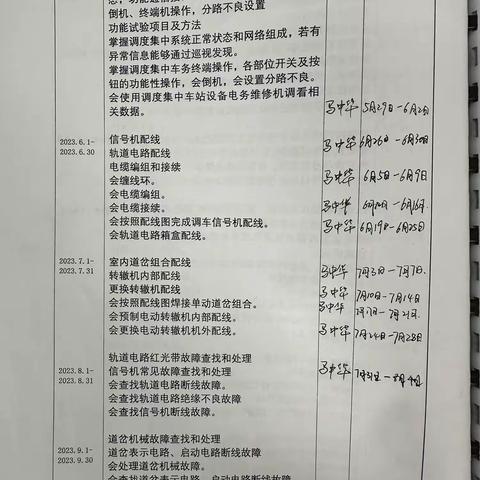 倒机、终端机操作，分路不良设置
功能试验项目及方法
掌握调度集中系统正常状态和网络组成，若有
异常信息能够通过巡视发现。
掌握调度集中车务终端操作，各部位开关及按
钮的功能性操作，会倒机，会设置分路不良。
会使用调度集中车站设备电务维修机调看相
关数据。
马中华 5月29日-6月2日
2023.6.1-
2023.6.30
信号机配线
轨道电路配线
电缆编组和接续
会缠线环。
会电缆编组。
会电缆接续。
会按照配线图完成调车信号机配线。
会轨道电路箱盒配线。
马中华 6月26日-6月30日
马中华 6月5日-6月9日
马中华
马中华 6月19日-6月25日
2023.7.1-
2023.7.31
室内道岔组合配线
转辙机内部配线
更换转辙机配线
会按照配线图焊接单动道岔组合。
会预制电动转辙机内部配线。
会更换电动转辙机机外配线。
马中华 7月3日-7月7日
马中华 7月10日-7月14日
马中华
马中华 7月24日-7月28日
2023.8.1-
2023.8.31
轨道电路红光带故障查找和处理
信号机常见故障查找和处理
会查找轨道电路断线故障。
会查找轨道电路绝缘不良故障
会查找信号机断线故障。
马中华 7月31日-8月4日
2023.9.1-
2023.9.30
道岔机械故障查找和处理
道岔表示电路、启动电路断线故障
会处理道岔机械故障。
会查找道岔表示电路、启动电路断线故障